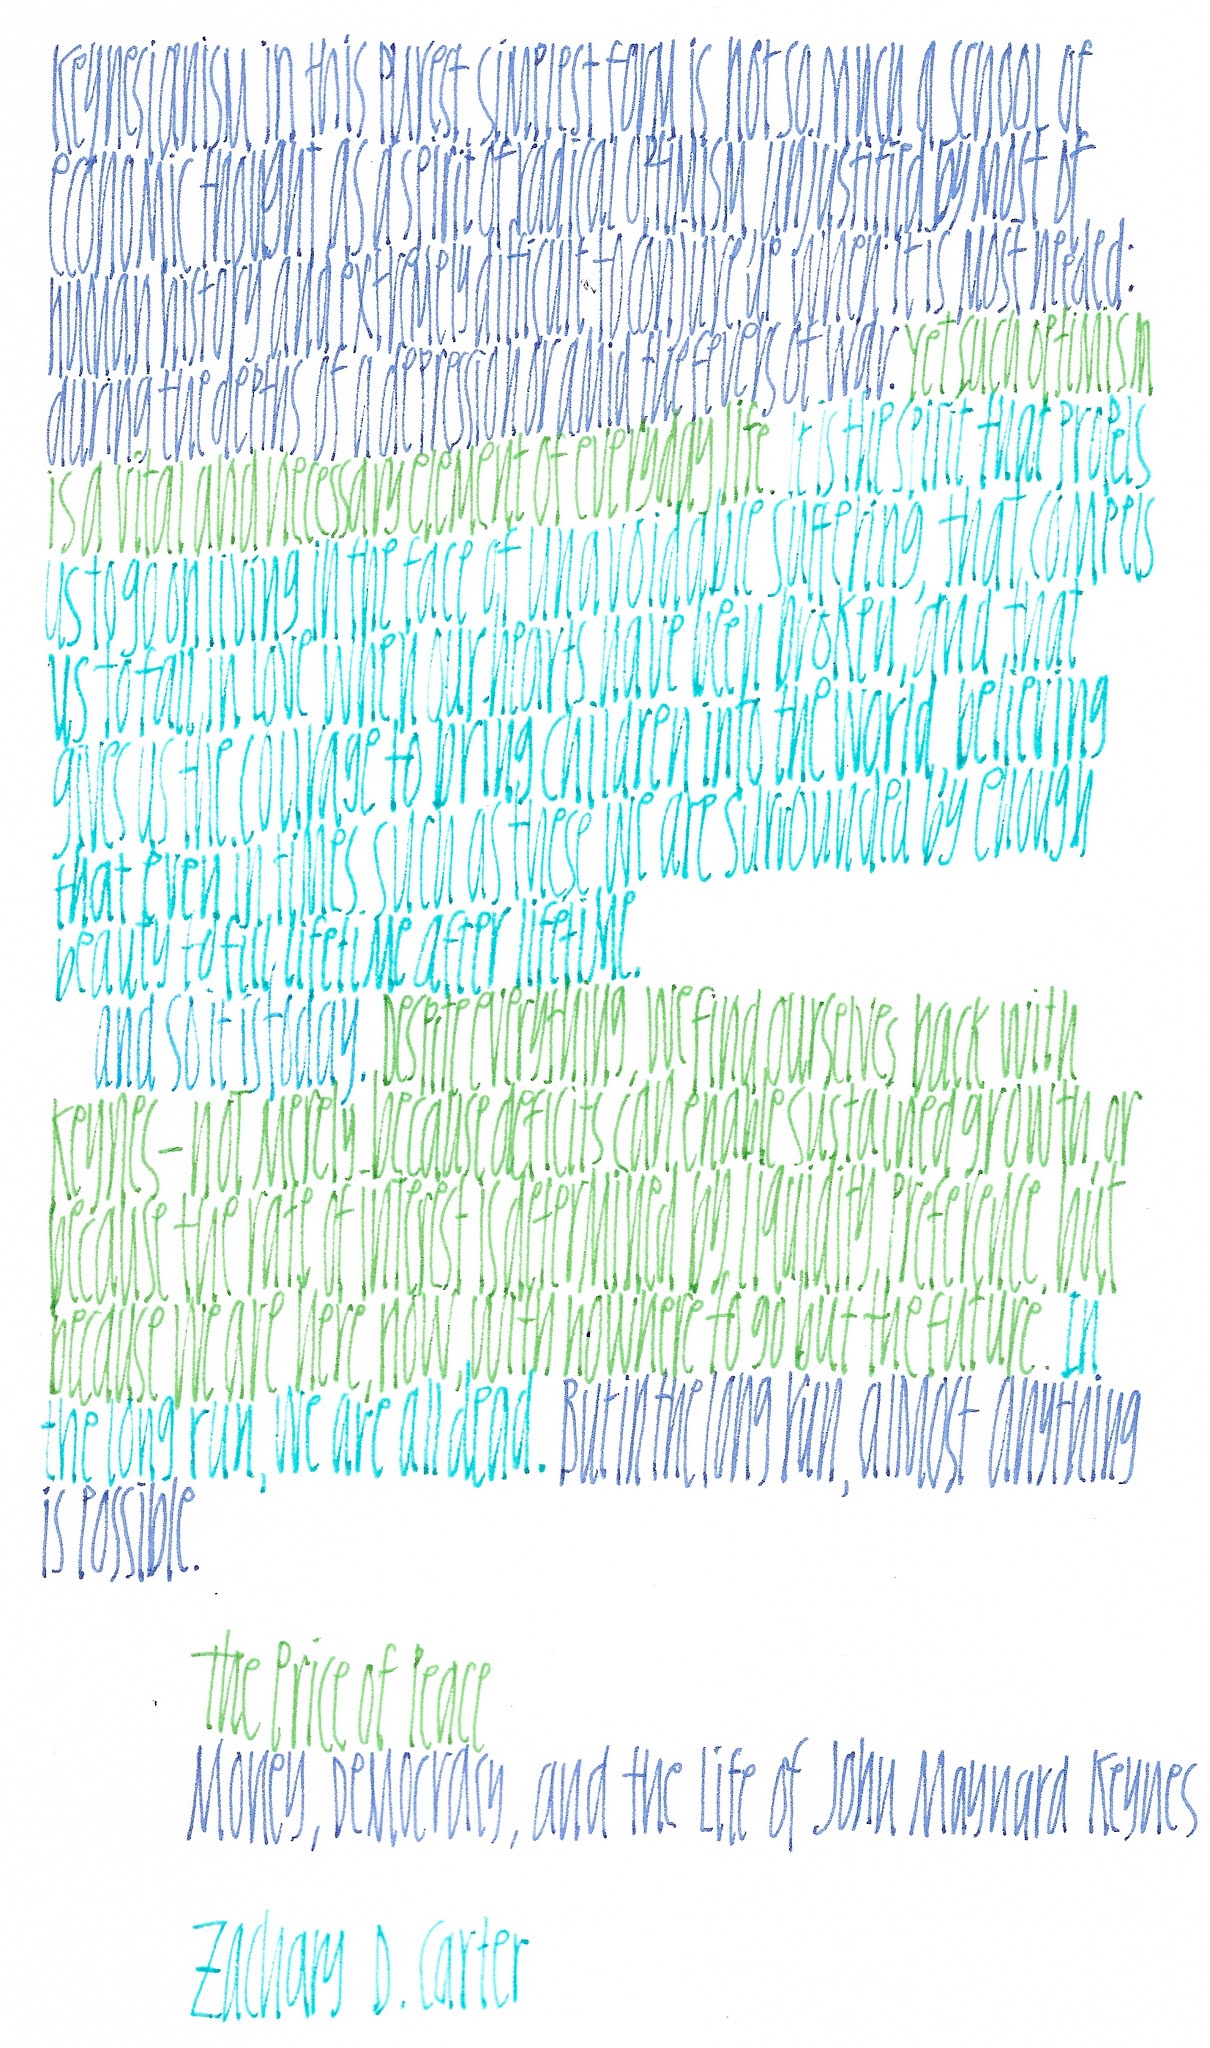 Keynesianism in this purest, simplest form is not so much a school of
economic thought as a spirit of radical optimism, unjustified by most of
human history and extremely difficult to conjure up when it is most needed:
during the depths of a depression or amid the fevers of war. Yet such optimism
is a vital and necessary element of everyday life. It is the spirit that propels
us to go on living in the face of unavoidable suffering, that compels
us to fall in love when our hearts have been broken, and that
gives us the courage to bring children into the world, believing
that even in times such as these we are surrounded by enough
beauty to fill lifetime after lifetime.
and so it is today. Despite everything, we find ourselves back with
Keynes — not merely because deficits can enable sustained growth, or
because the rate of interest is determined by liquidity preference, but
because we are here, now, with nowhere to go but the future. In
the long run, we are all dead. But in the long run, almost anything
is possible.
The Price of Peace
Money, Democracy, and the Life of John Maynard Keynes
Zachary D. Carter